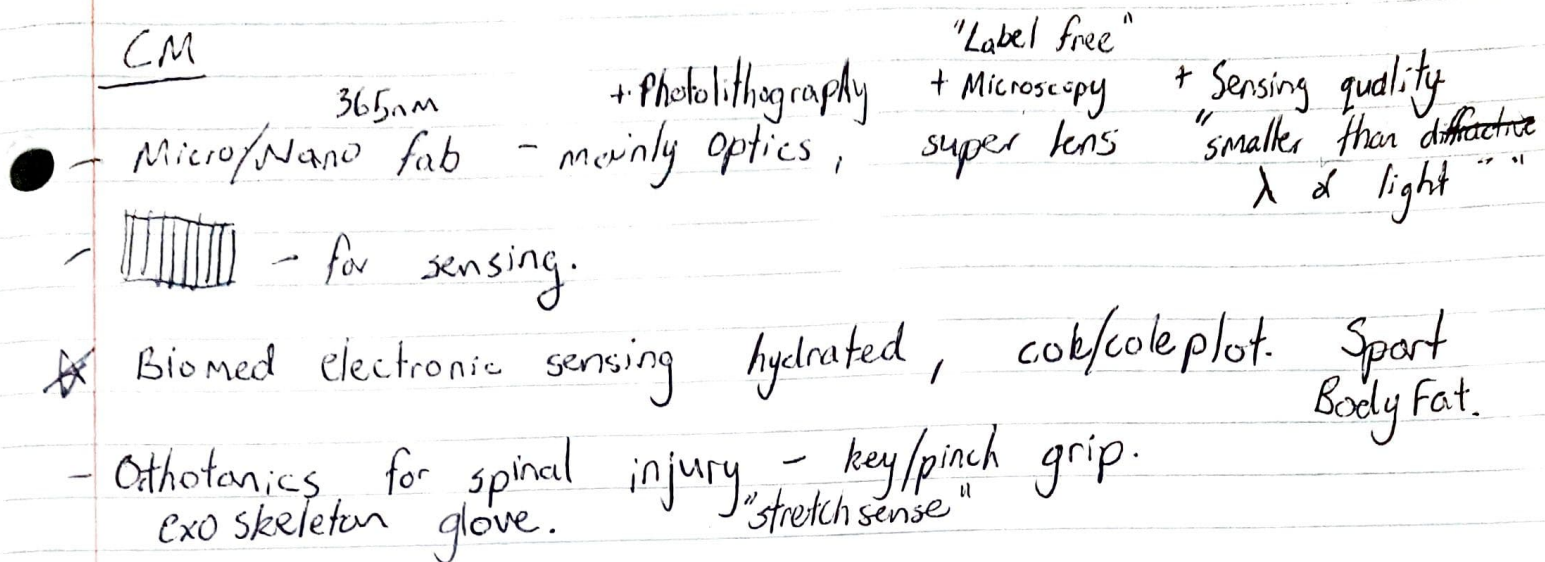 CM
"Label free"
365nm + Photolithography + Microscopy + Sensing quality
- Micro/Nano fab - mainly optics, super lens "smaller than diffractive
λ of light " "
- - for sensing.
Biomed electronic sensing hydrated, cole/cole plot. Sport
Body Fat.
- Othotonics for spinal injury - key/pinch grip.
exo skeleton glove. "stretch sense"